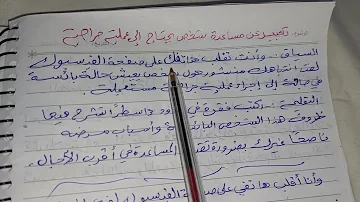 تعبير عن مساعدة شخص يحتاج إلى عملية جراحية
السياق: وأنت تقلب هاتفك على صفحة الفيسبوك
لفت انتباهك منشور حول شخص يعيش حالة بائسة
في حاجة إلى إجراء عملية جراحية مستعجلة.
التعليمة: اكتب فقرة في حدود أسطر تشرح فيها
ظروف هذا الشخص وأسباب مرضه
ناصحا غيرك بضرورة المساعدة في أقرب الآجال
وأنا أقلب هاتفي على صفحة الفيسبوك